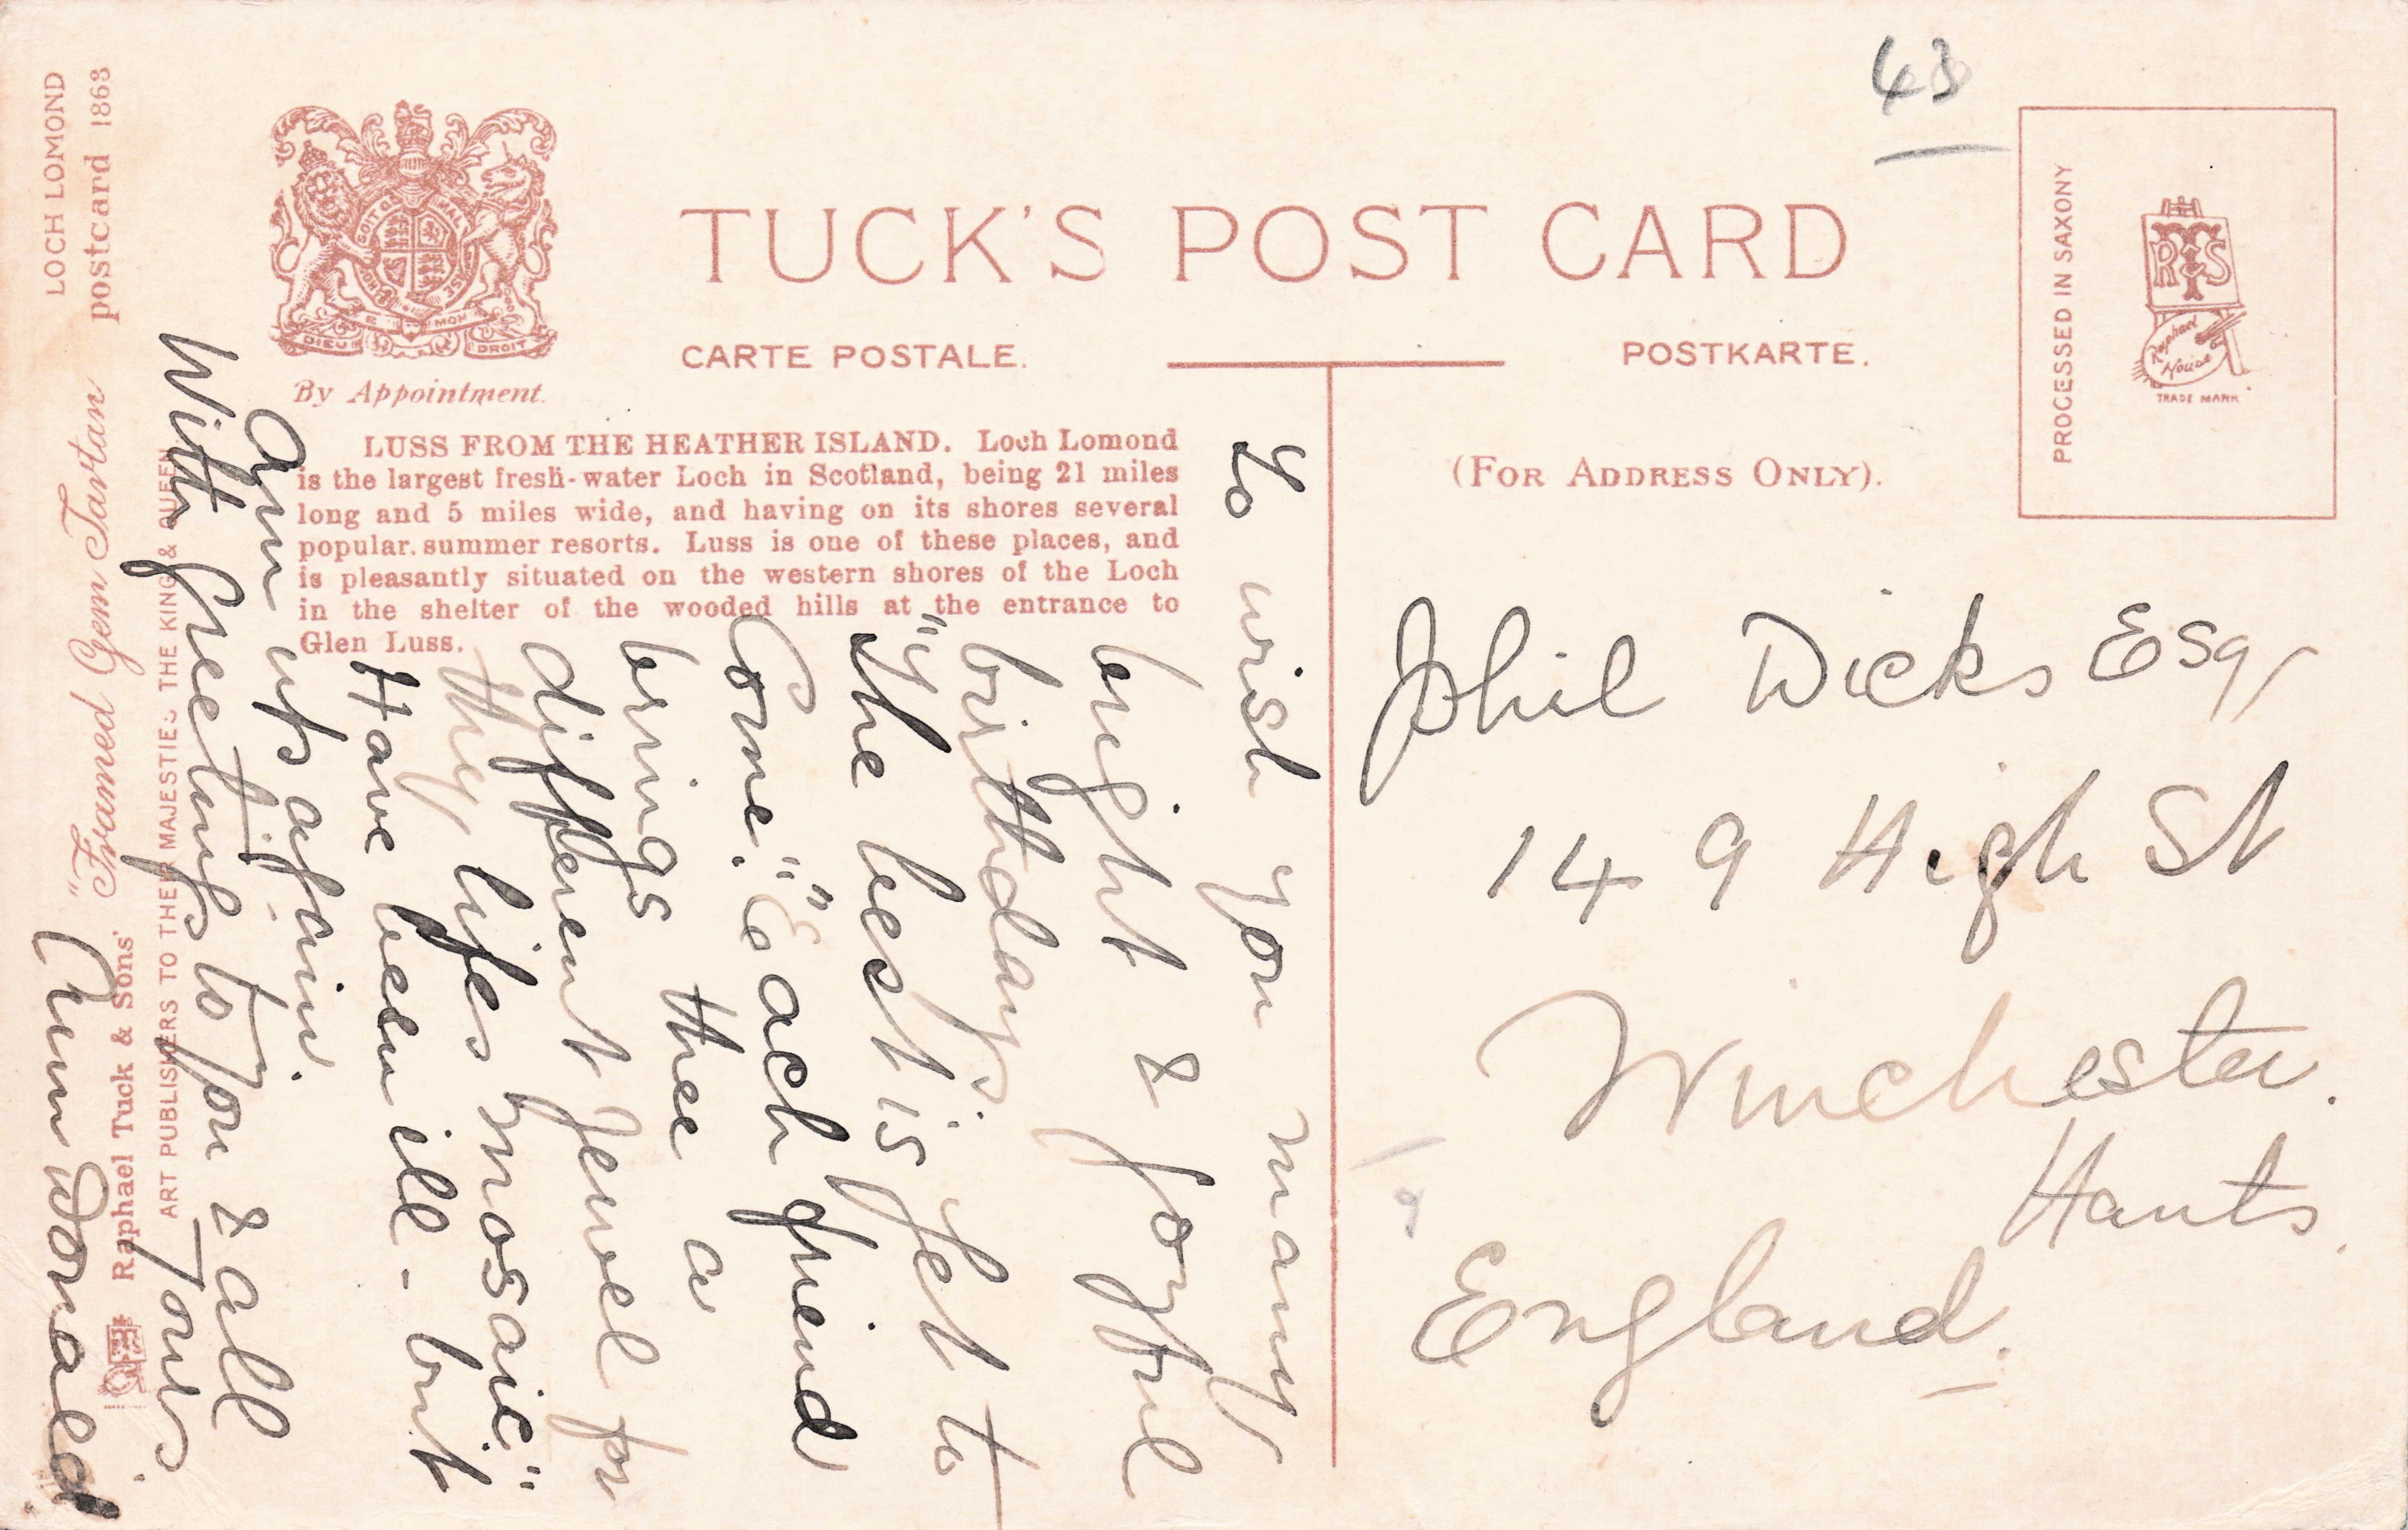 43
TUCK'S POST CARD
CARTE POSTALE.
POSTKARTE.
By Appointment.
SOIT QUI MAL Y PENSE
DIEU ET MON DROIT
PROCESSED IN SAXONY
RTS
Raphael
House
TRADE MARK
(FOR ADDRESS ONLY).
LUSS FROM THE HEATHER ISLAND. Loch Lomond
is the largest fresh-water Loch in Scotland, being 21 miles
long and 5 miles wide, and having on its shores several
popular summer resorts. Luss is one of these places, and
is pleasantly situated on the western shores of the Loch
in the shelter of the wooded hills at the entrance to
Glen Luss.
To wish you many
bright & joyful
birthdays.
"The best is yet to
Come." "Each friend
brings thee a
different jewel for
thy lifes mosaic"
Have been ill - but
am up again.
With Greetings to you & all
Yours
Donald
Phil Dicks Esq,
149 High St
Winchester.
Hants.
England.
LOCH LOMOND
postcard 1863
Raphael Tuck & Sons' "Framed Gem Tartan
ART PUBLISHERS TO THEIR MAJESTIES THE KING & QUEEN